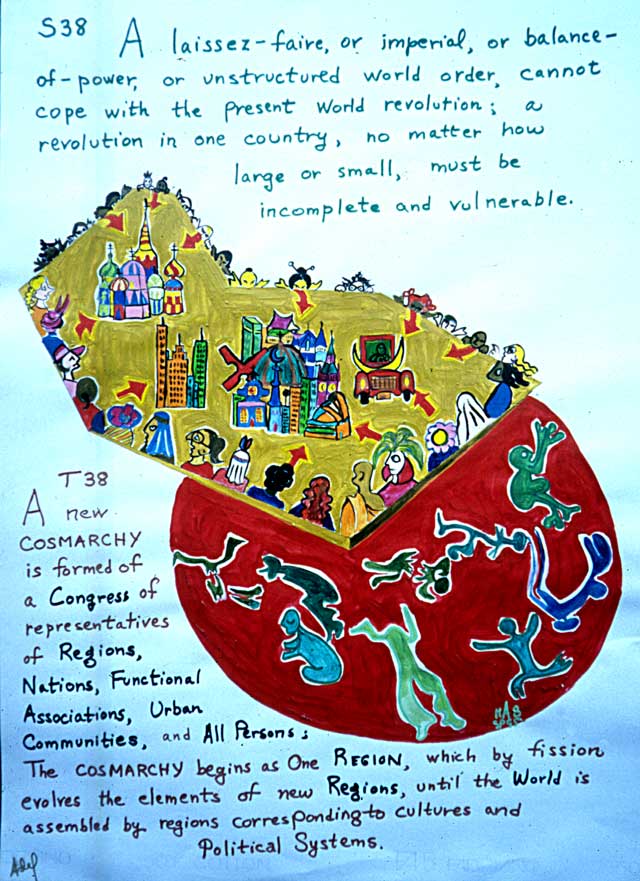 S38
A laissez-faire, or imperial, or balance-
of-power, or unstructured world order, cannot
cope with the present World revolution; a
revolution in one country, no matter how
large or small, must be
incomplete and vulnerable.
T38
A new
COSMARCHY
is formed of
a Congress of
representatives
of Regions,
Nations, Functional
Associations, Urban
Communities, and All Persons;
The COSMARCHY begins as One REGION, which by fission
evolves the elements of new Regions, until the World is
assembled by regions corresponding to cultures and
Political Systems.